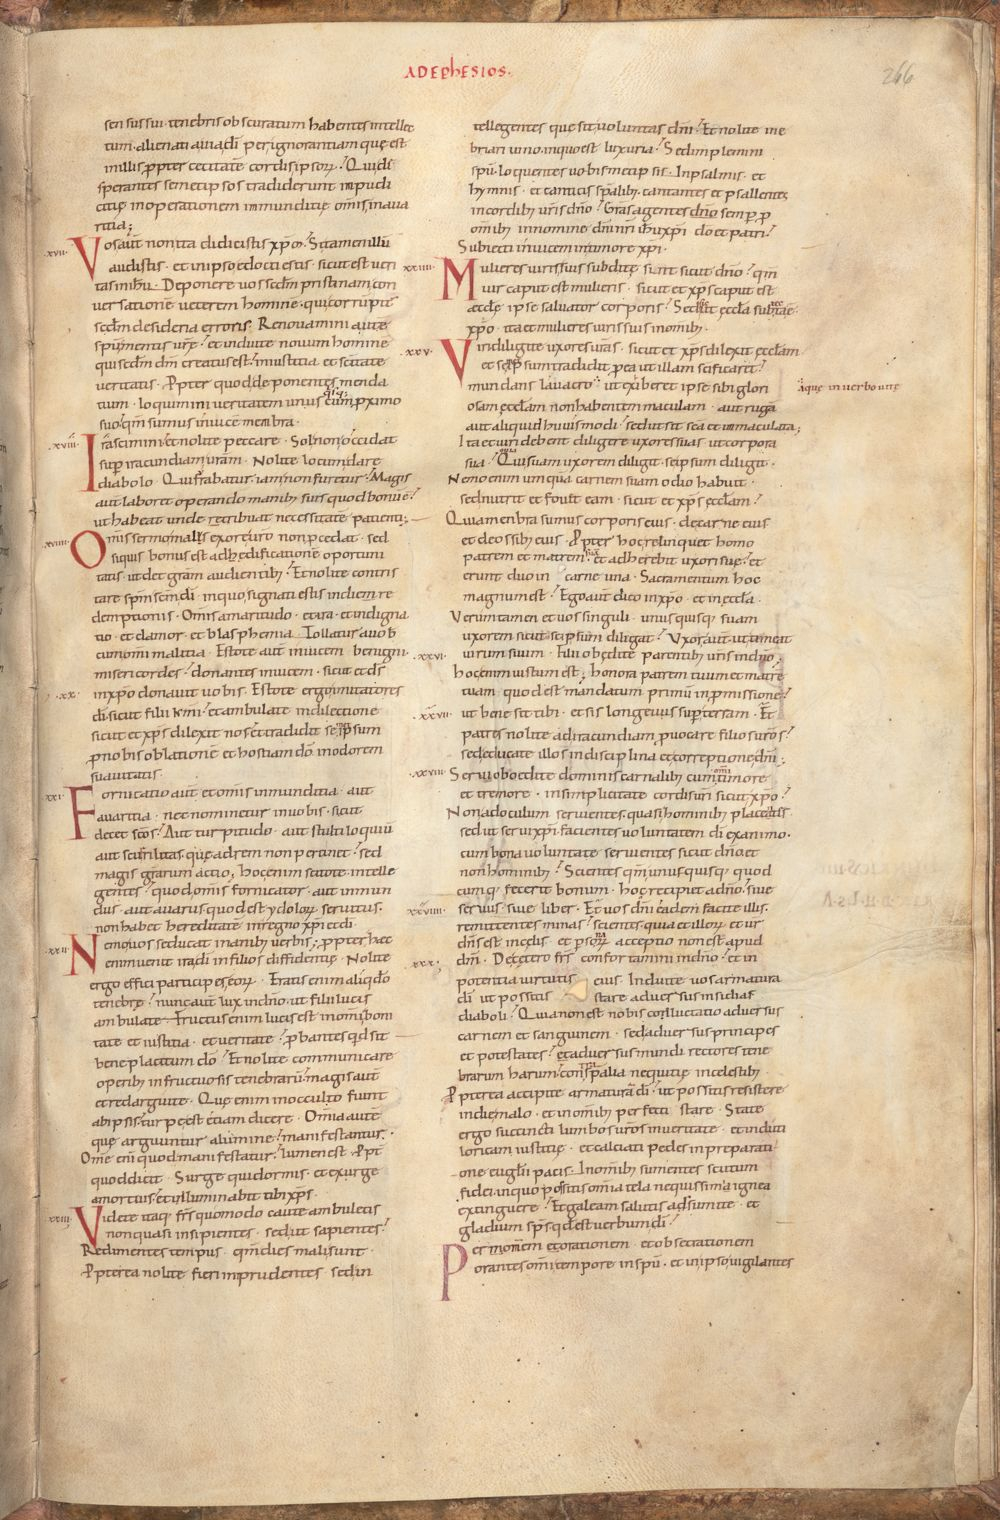 AD EPHESIOS.
266
sensus sui. tenebris obscuratum habentes intellec
tum. alienati a uia dī per ignorantiam que est
in illis ꝓpter cecitatē cordis ipsoꝝ. Qui de
sperantes semet ipsos tradiderunt inpudi
citię in operationem inmunditię om̄is in aua
ritia;
.xvii.
Vos aut̄ non ita didicistis xp̄m. Si tamen illū
audistis. et in ipso edocti estis. sicut est ueri
tas in ihū. Deponere uos scd̄m pristinam con
uersationē ueterem hominē. qui corrūpit̄
scd̄m desideria erroris. Renouamini autē
spū mentis urę. et induite nouum hominē
qui scd̄m dm̄ creatus est. in iustitia et sc̄itate
ueritatis. Ꝓpter quod deponentes menda
tium. loquimini ueritatem unusqisq; cum ꝓximo
suo. qm̄ sumus inuicē membra.
.xviii.
Irascimini et nolite peccare. Sol non occidat
sup iracundiam urām. Nolite locum dare
diabolo. Qui furabatur. iam non furetur. Magis
aut̄ laboret operando manib; suis quod bonū ē.
ut habeat unde tribuat necessitatē patienti;
.xviiii.
Om̄is sermo malus ex ore uro non ꝓcedat. sed
si quis bonus est ad ędificationē oportuni
tatis. ut det grām audientib;. Et nolite contris
tare sp̄m scm̄ dī. in quo signati estis in die re
demptionis. Om̄is amaritudo. et ira. et indigna
tio. et clamor. et blasphemia. Tollatur a uob̄
cum om̄i malitia. Estote aut̄ inuicem benigni.
misericordes. donantes inuicem. sicut et d̄s
.xx.
in xp̄o donauit uobis. Estote ergo imitatores
dī. sicut filii kmī. et ambulate in dilectione
sicut et xp̄s dilexit nos. et tradidit se ipsum
ꝓ nobis oblationē et hostiam dō in odorem
suauitatis.
.xxi.
Fornicatio aut̄ et om̄is inmunditia. aut
auaritia. nec nominetur in uobis. sicut
decet scōs. Aut turpitudo. aut stultiloquiū
aut scurilitas. que ad rem non ꝑtinet. sed
magis grārum actio. hoc enim scitote intelle
gentes. quod om̄is fornicator. aut inmun
dus. aut auarus quod est ydoloꝝ seruitus.
non habet hereditatē in regno xp̄i et dī.
.xxii.
Nemo uos seducat inanib; uerbis. ꝓpter hęc
enim uenit ira dī in filios diffidentię. Nolite
ergo effici participes eoꝝ. Eratis enim aliqdo
tenebrę. nunc aut̄ lux in dn̄o. ut filii lucis
ambulate. Fructus enim lucis est in om̄i boni
tate et iustitia. et ueritate. ꝓbantes qd sit
bene placitum dō. Et nolite communicare
operib; infructuosis tenebrarū. magis aut̄
et redarguite. Que enim in occulto fiunt
ab ipsis. turpe est etiam dicere. Om̄ia autē
que arguuntur a lumine. manifestantur.
Om̄e enī quod manifestatur. lumen est. Ꝓpt̄
quod dicit. Surge qui dormis. et exurge
a mortuis. et illuminabit tibi xp̄s.
.xxiii.
Videte itaq. frs̄ quomodo caute ambuletis
non quasi insipientes. sed ut sapientes.
Redimentes tempus. qm̄ dies mali sunt.
Ꝓpterea nolite fieri inprudentes. sed in
tellegentes que sit uoluntas dn̄i. Et nolite ine
briari uino. in quo est luxuria. Sed implemini
spū. loquentes uobismetipsis. In psalmis. et
hymnis. et canticis sp̄alib;. cantantes et psallentes
in cordib; uris dn̄o. Gr̄as agentes dn̄o semper ꝓ
om̄ib; in nomine dn̄i nrī ihū xp̄i dō et patri.
Subiecti inuicem in timore xp̄i.
.xxiiii.
Mulieres uiris suis subditę sunt sicut dn̄o. qm̄
uir caput est mulieris. sicut et xp̄s caput est
ęcclę. ipse saluator corporis. Sed sicut ęccl̄a subiecta ē
xp̄o. ita et mulieres uiris suis in om̄ib;.
.xxv.
Viri diligite uxores urās. sicut et xp̄s dilexit ęccl̄am
et se ipsum tradidit ꝓ ea ut illam sc̄ificaret.
mundans lauacro. ut exhiberet ipse sibi glori
aque in uerbo uitę
osam ęccl̄am non habentem maculam. aut rugā
aut aliquid huiusmodi. sed ut sit sc̄a et inmaculata;
Ita et uiri debent diligere uxores suas. ut corpora
sua. Qui suam uxorem diligit. se ipsum diligit.
Nemo enim umquā carnem suam odio habuit.
sed nutrit et fouet eam. sicut et xp̄s ęccl̄am.
Quia menbra sumus corporis eius. de carne eius
et de ossib; eius. Ꝓpter hoc relinquet homo
patrem et matrem sua. et adherebit uxori suę. et
erunt duo in carne una. Sacramentum hoc
magnum est. Ego aut̄ dico in xp̄o. et in ęccl̄a.
Verum tamen et uos singuli. unus quisq; suam
uxorem sicut se ipsum diligat. Vxor aut̄ ut timeat
.xxvi.
uirum suum. Filii obedite parentib; uris in dn̄o.
hoc enim iustum est. honora patrem tuum et matrē
tuam. quod est mandatum primū in ꝓmissione.
.xxvii.
ut bene sit tibi. et sis longeuus sup terram. Et
patres nolite ad iracundiam ꝓuocare filios uros.
sed educate illos in disciplina et correptione dn̄i;
.xxviii.
Serui oboedite dominis carnalib; cum timore
et tremore. in simplicitate cordis uri sicut xp̄o.
Non ad oculum seruientes. quasi hominib; placentes
sed ut serui xp̄i. facientes uoluntatem dī ex animo.
cum bona uoluntate seruientes sicut dn̄o. et
non hominib;. Scientes qm̄ unus quisq; quod
cumq; fecerit bonum. hoc recipiet a dn̄o. siue
.xxviiii.
seruus. siue liber. Et uos dn̄i eadem facite illis.
remittentes minas. scientes. quia et illoꝝ et ur̄
dn̄s est in celis. et ꝑsonaꝝ acceptio non est apud
.xxx.
dm̄. De cetero frs̄ confortamini in dn̄o. et in
potentia uirtutis eius. Induite uos armatura
dī ut possitis stare aduersus insidias
diaboli. Quia non est nobis colluctatio aduersus
carnem et sanguinem. sed aduersus principes
et potestates. et aduersus mundi rectores tene
brarum harum. contra sp̄alia nequitię in celestib;.
Ꝓpterea accipite armaturā dī. ut possitis resistere
in die malo. et in om̄ib; perfecti stare. State
ergo succincti lumbos uros in ueritate. et induti
loricam iustitię. et calciati pedes in preparati
one eugl̄ii pacis. In om̄ib; sumentes scutum
fidei. in quo possitis om̄ia tela nequissimi ignea
extinguere. Et galeam salutis adsumite. et
gladium sp̄s. qd est uerbum dī.
Per om̄em orationem. et obsecrationem
orantes om̄i tempore in spū. et in ipso uigilantes